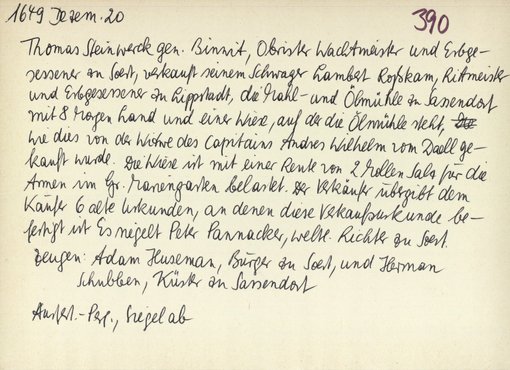 1649 Dezem. 20
390
Thomas Steinwerck gen. Binnit, Obrister Wachtmeister und Erbge-
sessener zu Soest, verkauft seinem Schwager Lambert Roßkam, Rittmeister
und Erbgesessener zu Lippstadt, die Mahl- und Ölmühle zu Sassendorf
mit 8 Morgen Land und einer Wiese, auf der die Ölmühle steht,
wie dies von der Witwe des Capitains Andres Wilhelm vom Dael ge-
kauft wurde. Die Wiese ist mit einer Rente von 2 Mollen Salz für die
Armen im Gr. Mariengarten belastet. Der Verkäufer übergibt dem
Käufer 6 alte Urkunden, an denen diese Verkaufsurkunde be-
festigt ist. Es siegelt Peter Pannacker, weltl. Richter zu Soest.
Zeugen: Adam Huseman, Bürger zu Soest, und Herman
Schubben, Küster zu Sassendorf
Ausfert.-Perg., Siegel ab